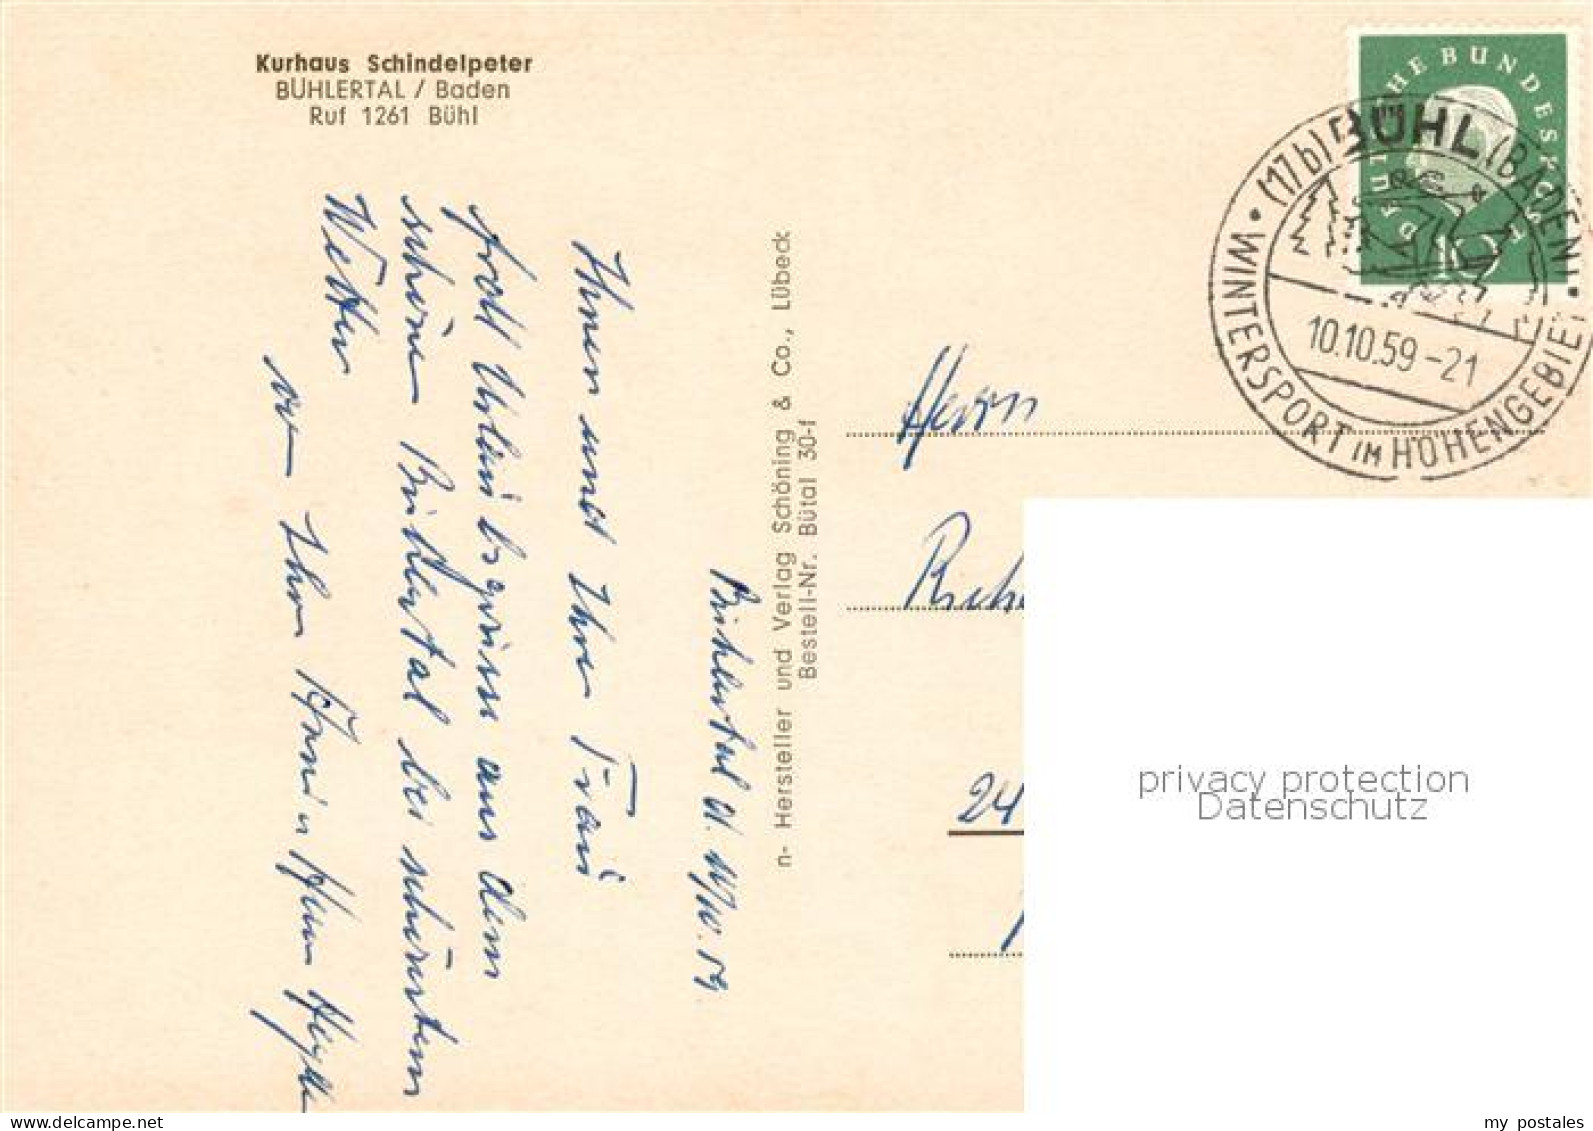 Kurhaus Schindelpeter
BÜHLERTAL / Baden
Ruf 1261 Bühl
DEUTSCHE BUNDESPOST
10
(17b) BÜHL (BADEN)
10.10.59-21
• WINTERSPORT IM HÖHENGEBIET •
n- Hersteller und Verlag Schöning & Co., Lübeck
Bestell-Nr. Bütal 30-f
Bühlertal d. 10/10. 59
Ihnen und Ihrer Frau
froh Urlaubsgrüsse aus dem
schönen Bühlertal bei schönstem
Wetter
Ihr
Herrn
24
privacy protection
Datenschutz
my postales